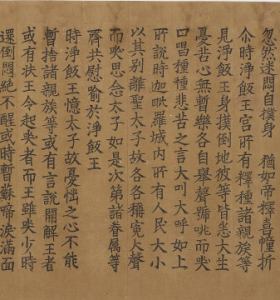 忽然迷悶自撲身 猶如帝釋喜幢折
尒時淨飯王宮所有釋種諸親族等
見淨飯王身撲倒地彼等皆悉大生
憂苦心無暫樂各自舉聲號咷而哭
口唱種種悲苦之言大叫大呼如上
所說時迦毗羅城內所有人民大小
以其別離聖太子故各各稱冤大聲
而哭思念太子如是次第諸眷属等
齊共慰喻於淨飯王
時淨飯王憶太子故憂惱之心不能
暫捨諸親族等或有言說開解王者
或有扶王令起坐者而王雖坐少時
還倒悶絕不醒或時暫蘇啼淚滿面